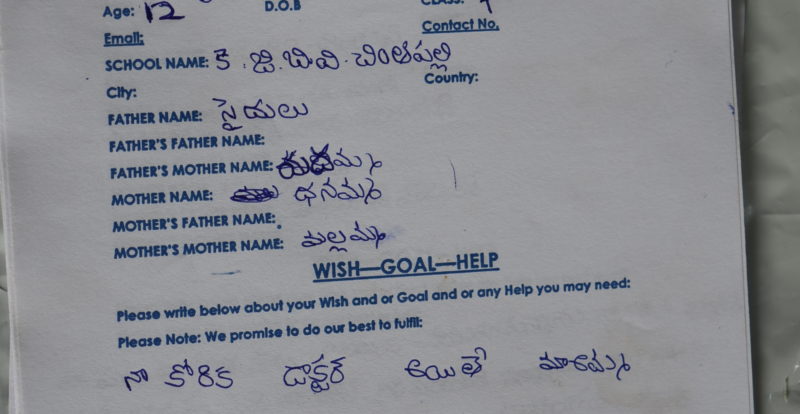 Age: 12 D.O.B
Email: Contact No.
SCHOOL NAME: కె.జి.బి.వి. చింతపల్లి
City: Country:
FATHER NAME: సైదులు
FATHER'S FATHER NAME:
FATHER'S MOTHER NAME:
MOTHER NAME: ధనమ్మ
MOTHER'S FATHER NAME:
MOTHER'S MOTHER NAME: మల్లమ్మ
WISH—GOAL—HELP
Please write below about your Wish and or Goal and or any Help you may need:
Please Note: We promise to do our best to fulfil:
నా కోరిక డాక్టర్ అయితే